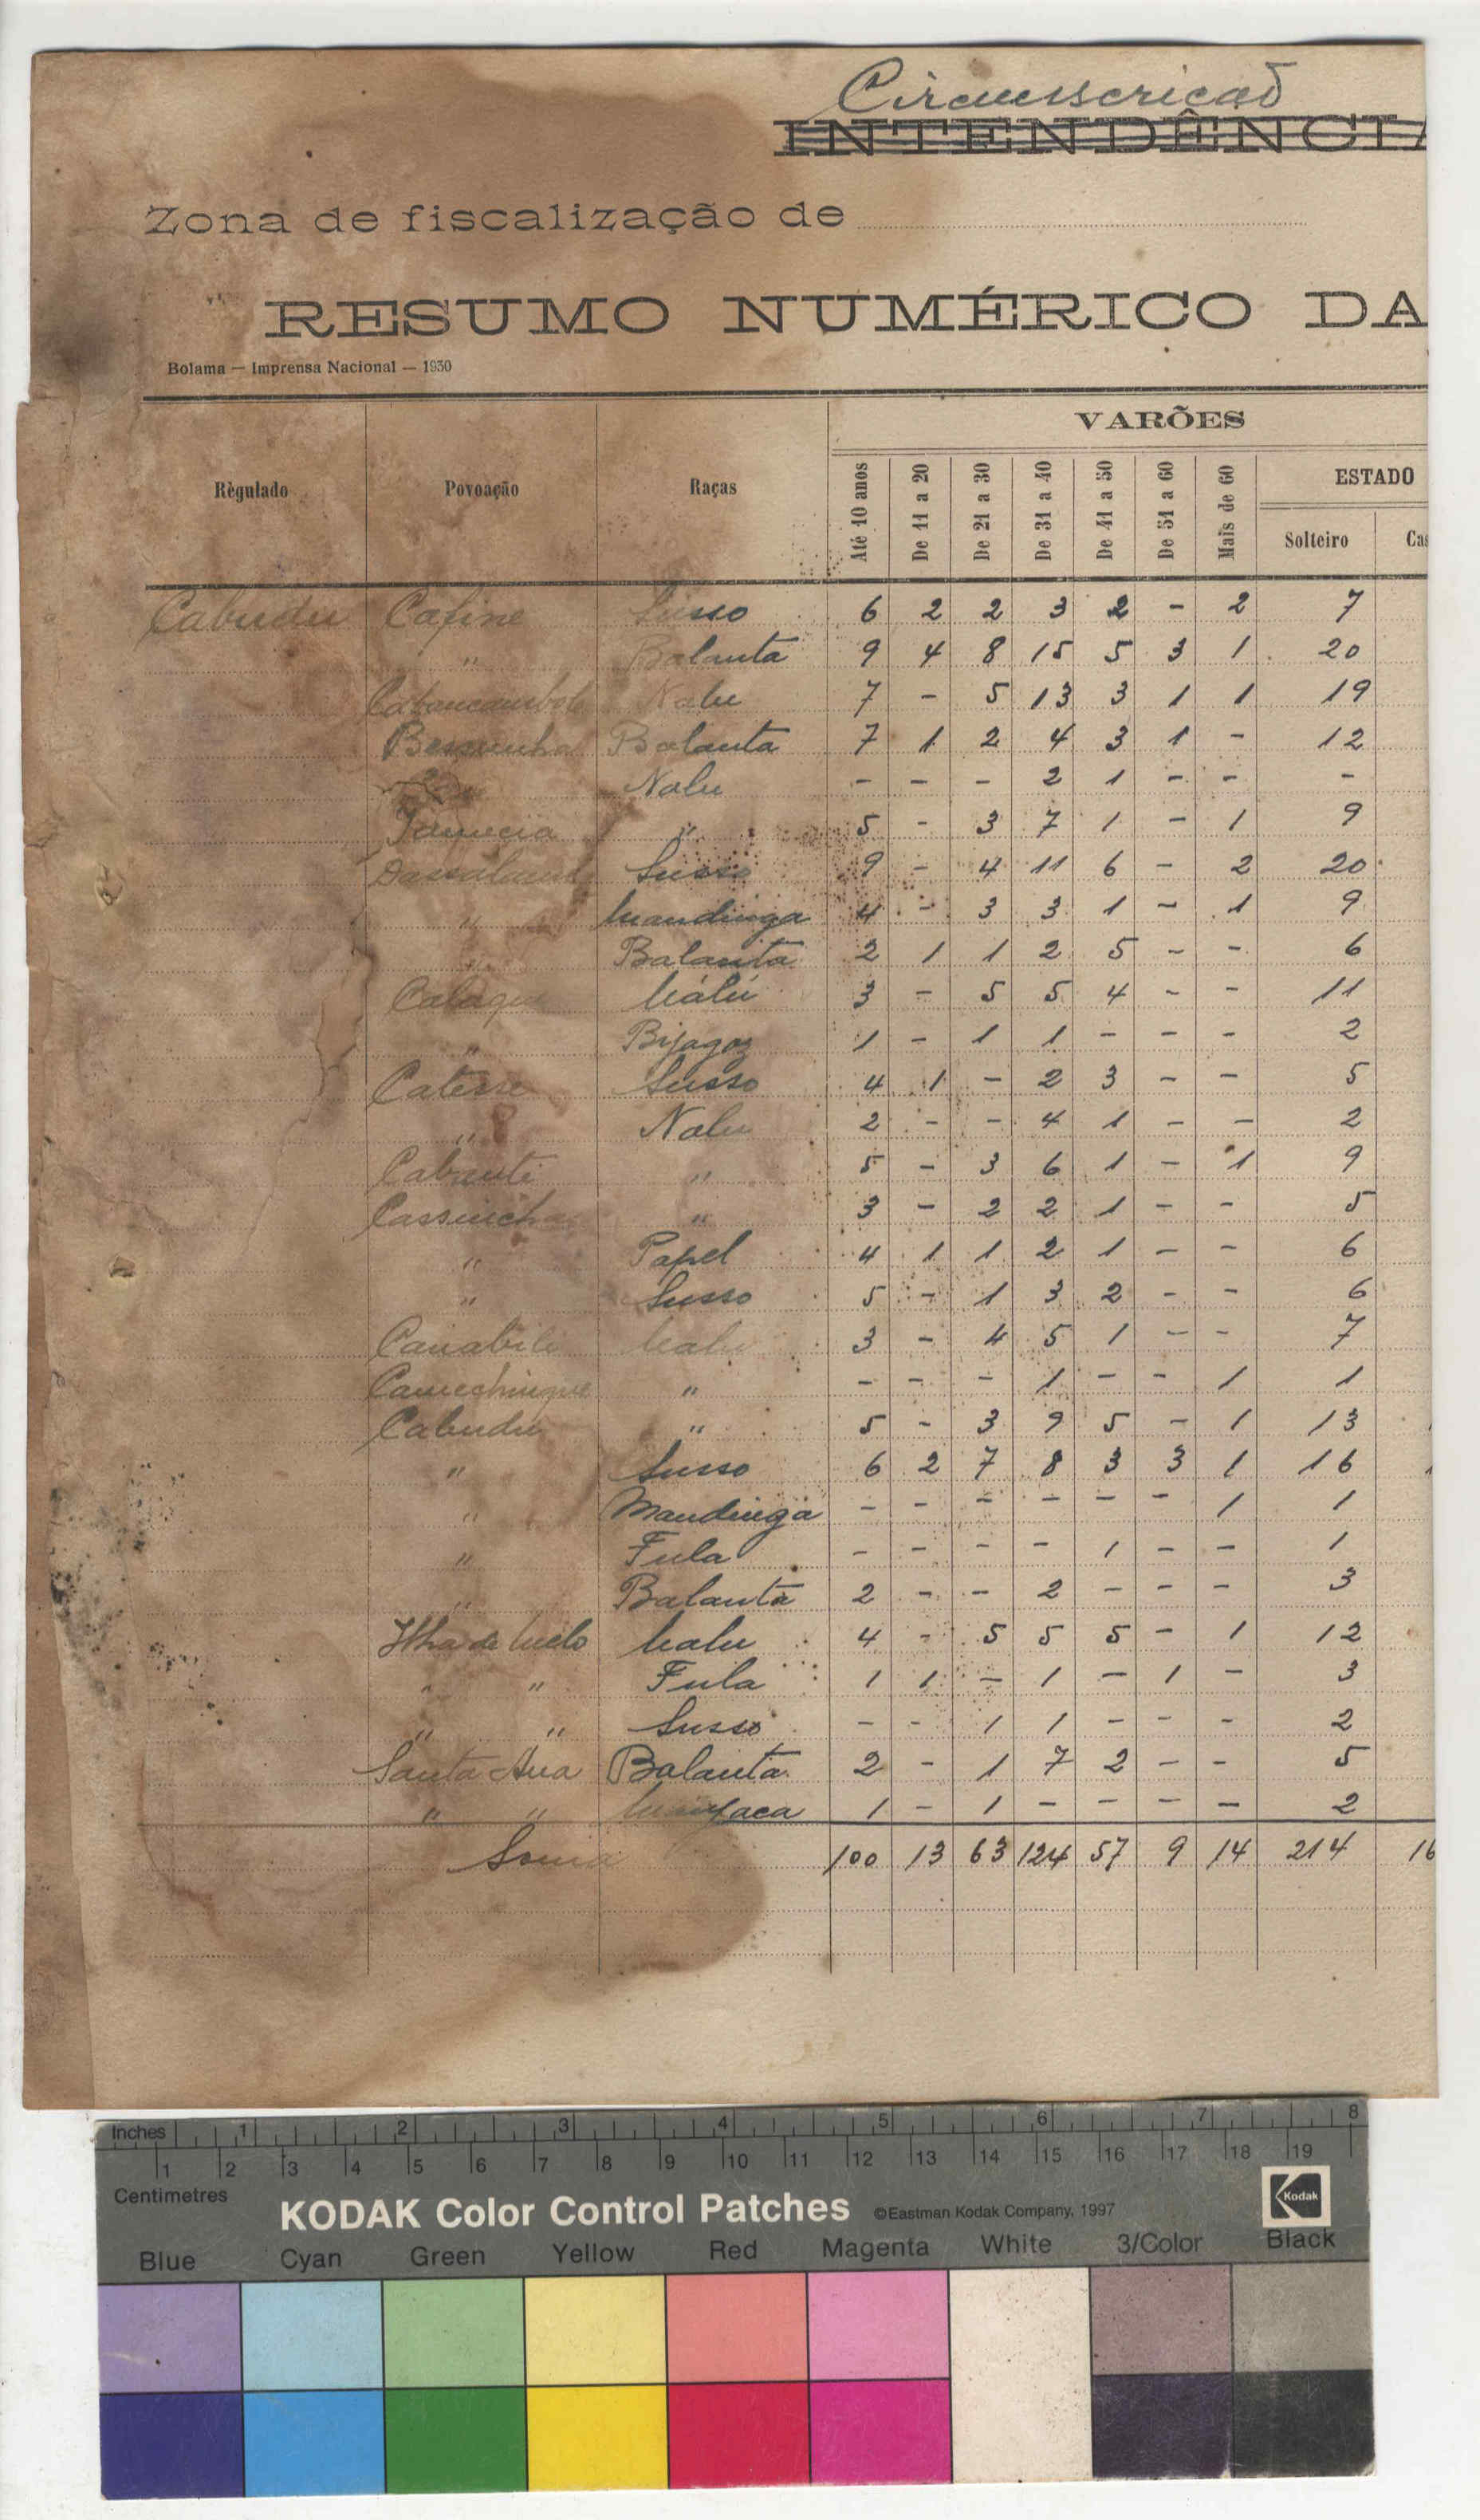 Circunscricaõ
INTENDÊNCIA
Zona de fiscalização de
RESUMO NUMÉRICO DA
Bolama — Imprensa Nacional — 1930
VARÕES
Règulado Povoação Raças Até 10 anos De 11 a 20 De 21 a 30 De 31 a 40 De 41 a 50 De 51 a 60 Mais de 60 ESTADO
Solteiro Cas
Cabudu Cafine Susso 6 2 2 3 2 - 2 7
" Balanta 9 4 8 15 5 3 1 20
Nalu 7 - 5 13 3 1 1 19
Balanta 7 1 2 4 3 1 - 12
Nalu - - - 2 1 - - -
" 5 - 3 7 1 - 1 9
Susso 9 - 4 11 6 - 2 20
" Mandinga 4 - 3 3 1 - 1 9
" Balanta 2 1 1 2 5 - - 6
Nálú 3 - 5 5 4 - - 11
" Bijagoz 1 - 1 1 - - - 2
Catesse Susso 4 1 - 2 3 - - 5
" Nalu 2 - - 4 1 - - 2
" 5 - 3 6 1 - 1 9
" 3 - 2 2 1 - - 5
" Papel 4 1 1 2 1 - - 6
" Susso 5 - 1 3 2 - - 6
Nalu 3 - 4 5 1 - - 7
" - - - 1 - - 1 1
Cabudu " 5 - 3 9 5 - 1 13
" Susso 6 2 7 8 3 3 1 16
" Mandinga - - - - - - 1 1
" Fula - - - - 1 - - 1
" Balanta 2 - - 2 - - - 3
Ilha de Melo Nalu 4 - 5 5 5 - 1 12
" " Fula 1 1 - 1 - 1 - 3
" " Susso - - 1 1 - - - 2
Santa Ana Balanta 2 - 1 7 2 - - 5
" " Manjaca 1 - 1 - - - - 2
Soma 100 13 63 124 57 9 14 214 16
Inches 1 2 3 4 5 6 7 8
1 2 3 4 5 6 7 8 9 10 11 12 13 14 15 16 17 18 19
Centimetres
KODAK Color Control Patches ©Eastman Kodak Company, 1997 Kodak
Blue Cyan Green Yellow Red Magenta White 3/Color Black